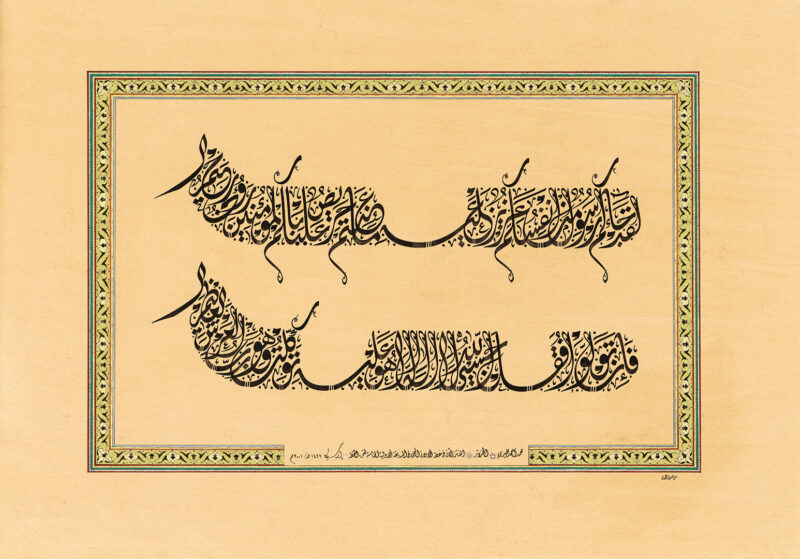 لقد جاءكم رسول من أنفسكم عزيز عليه ما عنتم حريص عليكم بالمؤمنين رؤوف رحيم
فإن تولوا فقل حسبي الله لا إله إلا هو عليه توكلت وهو رب العرش العظيم